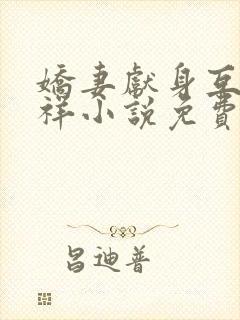 嬌妻獻身互
祥小說免費
昌迪普